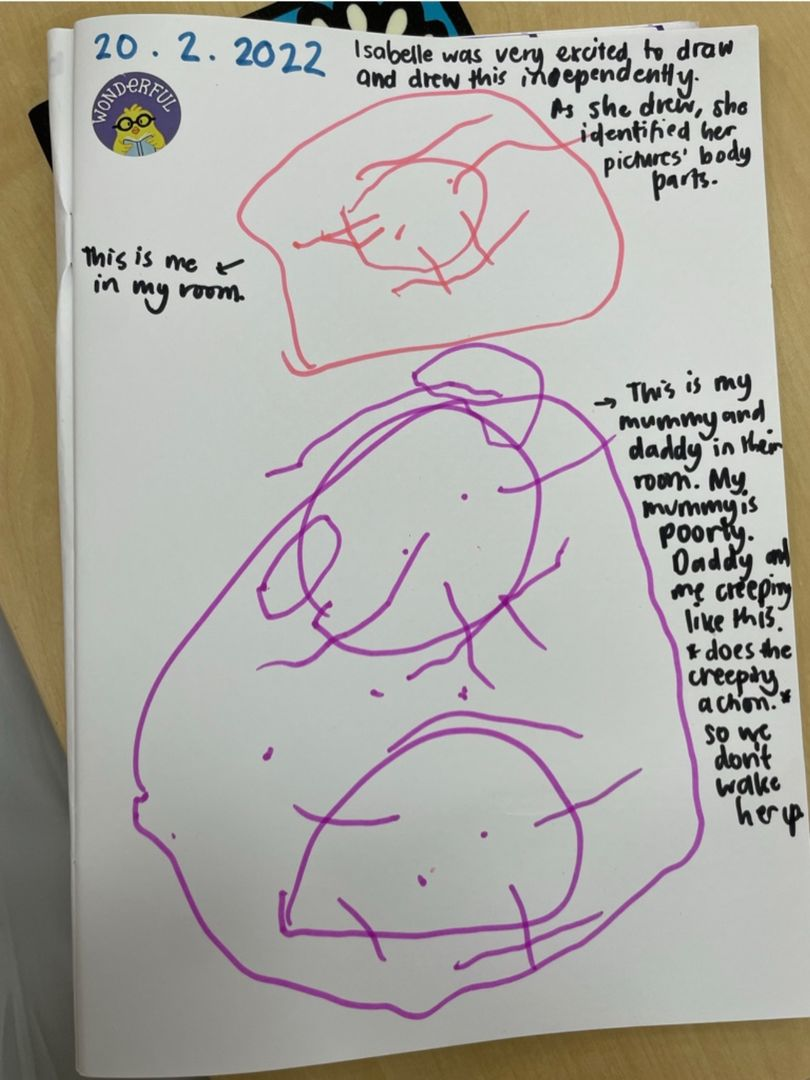 20.2.2022
Isabelle was very excited to draw
and drew this independently.
As she drew, she
identified her
pictures' body
parts.
WONDERFUL
This is me ↙
in my room.
→ This is my
mummy and
daddy in their
room. My
mummy is
poorly.
Daddy and
me creeping
like this.
*does the
creeping
action.*
so we
dont
wake
her up